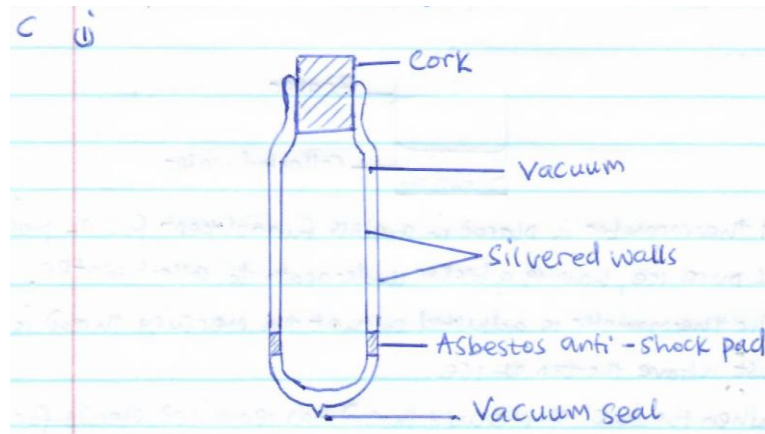 C i
Cork
Vacuum
Silvered walls
Asbestos anti-shock pad
Vacuum seal